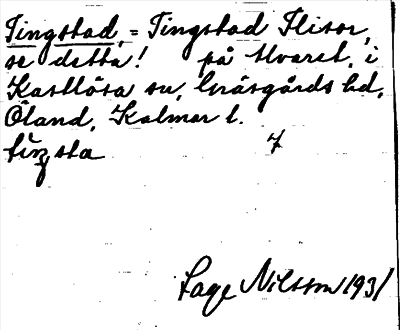 Tingstad, = Tingstad Flisor,
se detta! på Alvaret, i
Kastlösa sn, Gräsgårds hd,
Öland, Kalmar l.
tiŋsta 7
Sage Nilsson 1931